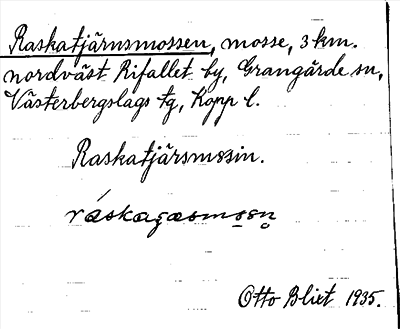 Raskatjärnsmossen, mosse, 3 km.
nordväst Rifallet by, Grangärde sn,
Västerbergslags tg, Kopp l.
Raskatjärsmssin.
Otto Blixt 1935.